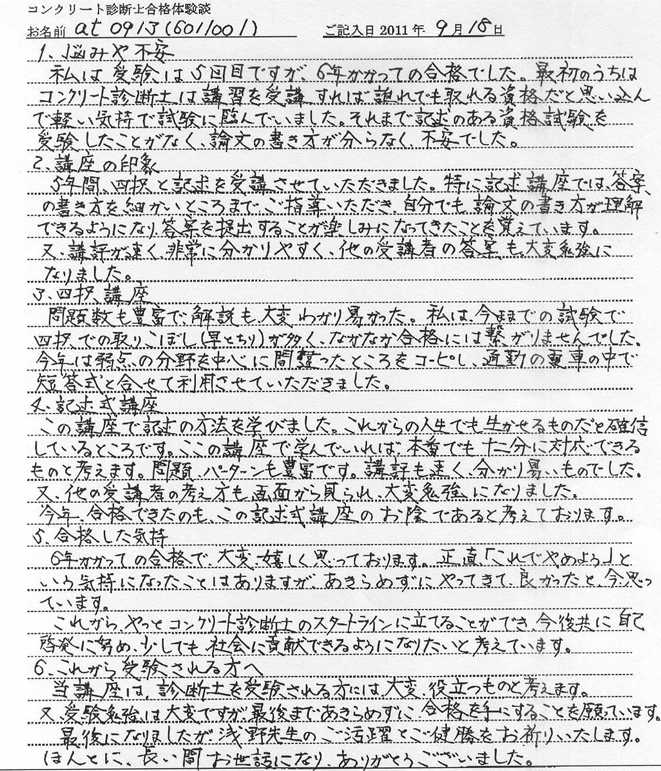 コンクリート診断士合格体験談
お名前 at0913(6011001) ご記入日2011年9月18日
1、悩みや不安
私は受験は5回目ですが、6年かかっての合格でした。最初のうちは
コンクリート診断士は講習を受講すれば誰れでも取れる資格だと思い込ん
で軽い気持で試験に臨んでいました。それまで記述のある資格試験を
受験したことがなく、論文の書き方が分らなく、不安でした。
2.講座の印象
5年間、四択と記述を受講させていただきました。特に記述講座では、答案
の書き方を細かいところまでご指導いただき、自分でも論文の書き方が理解
できるようになり、答案を提出することが楽しみになってきたことを覚えています。
又、講評が速く、非常に分かりやすく、他の受講者の答案も大変勉強に
なりました。
3.四択講座
問題数も豊富で、解説も大変わかり易かった。私は、今までの試験で
四択での取りこぼし(早とちり)が多く、なかなか合格には繋がりませんでした。
今年は弱点の分野を中心に間違ったところをコーピし、通勤の電車の中で
短答式と合せて利用させていただきました。
4.記述式講座
この講座で記述の方法を学びました。これからの人生でも生かせるものだと確信
しているところです。ここの講座で学んでいれば、本番でも十二分に対応できる
ものと考えます。問題パターンも豊富です。講評も速く、分かり易いものでした。
又、他の受講者の考え方も画面から見られ、大変勉強になりました。
今年、合格できたのも、この記述式講座のお陰であると考えております。
5.合格した気持
6年かかっての合格で、大変嬉しく思っております。正直「これでやめよう」と
いう気持になったことはありますが、あきらめずにやってきて、良かったと今思っ
ています。
これから、やっとコンクリート診断士のスタートラインに立てることができ、今後共に自己
啓発に努め、少しでも社会に貢献できるようになりたいと考えています。
6.これから受験される方へ
当講座は、診断士を受験される方には、大変、役立つものと考えます。
又、受験勉強は大変ですが、最後まであきらめずに、合格を手にすることを願っています。
最後になりましたが浅野先生のご活躍とご健勝をお祈りいたします。
ほんとに、長い間お世話になり、ありがとうございました。